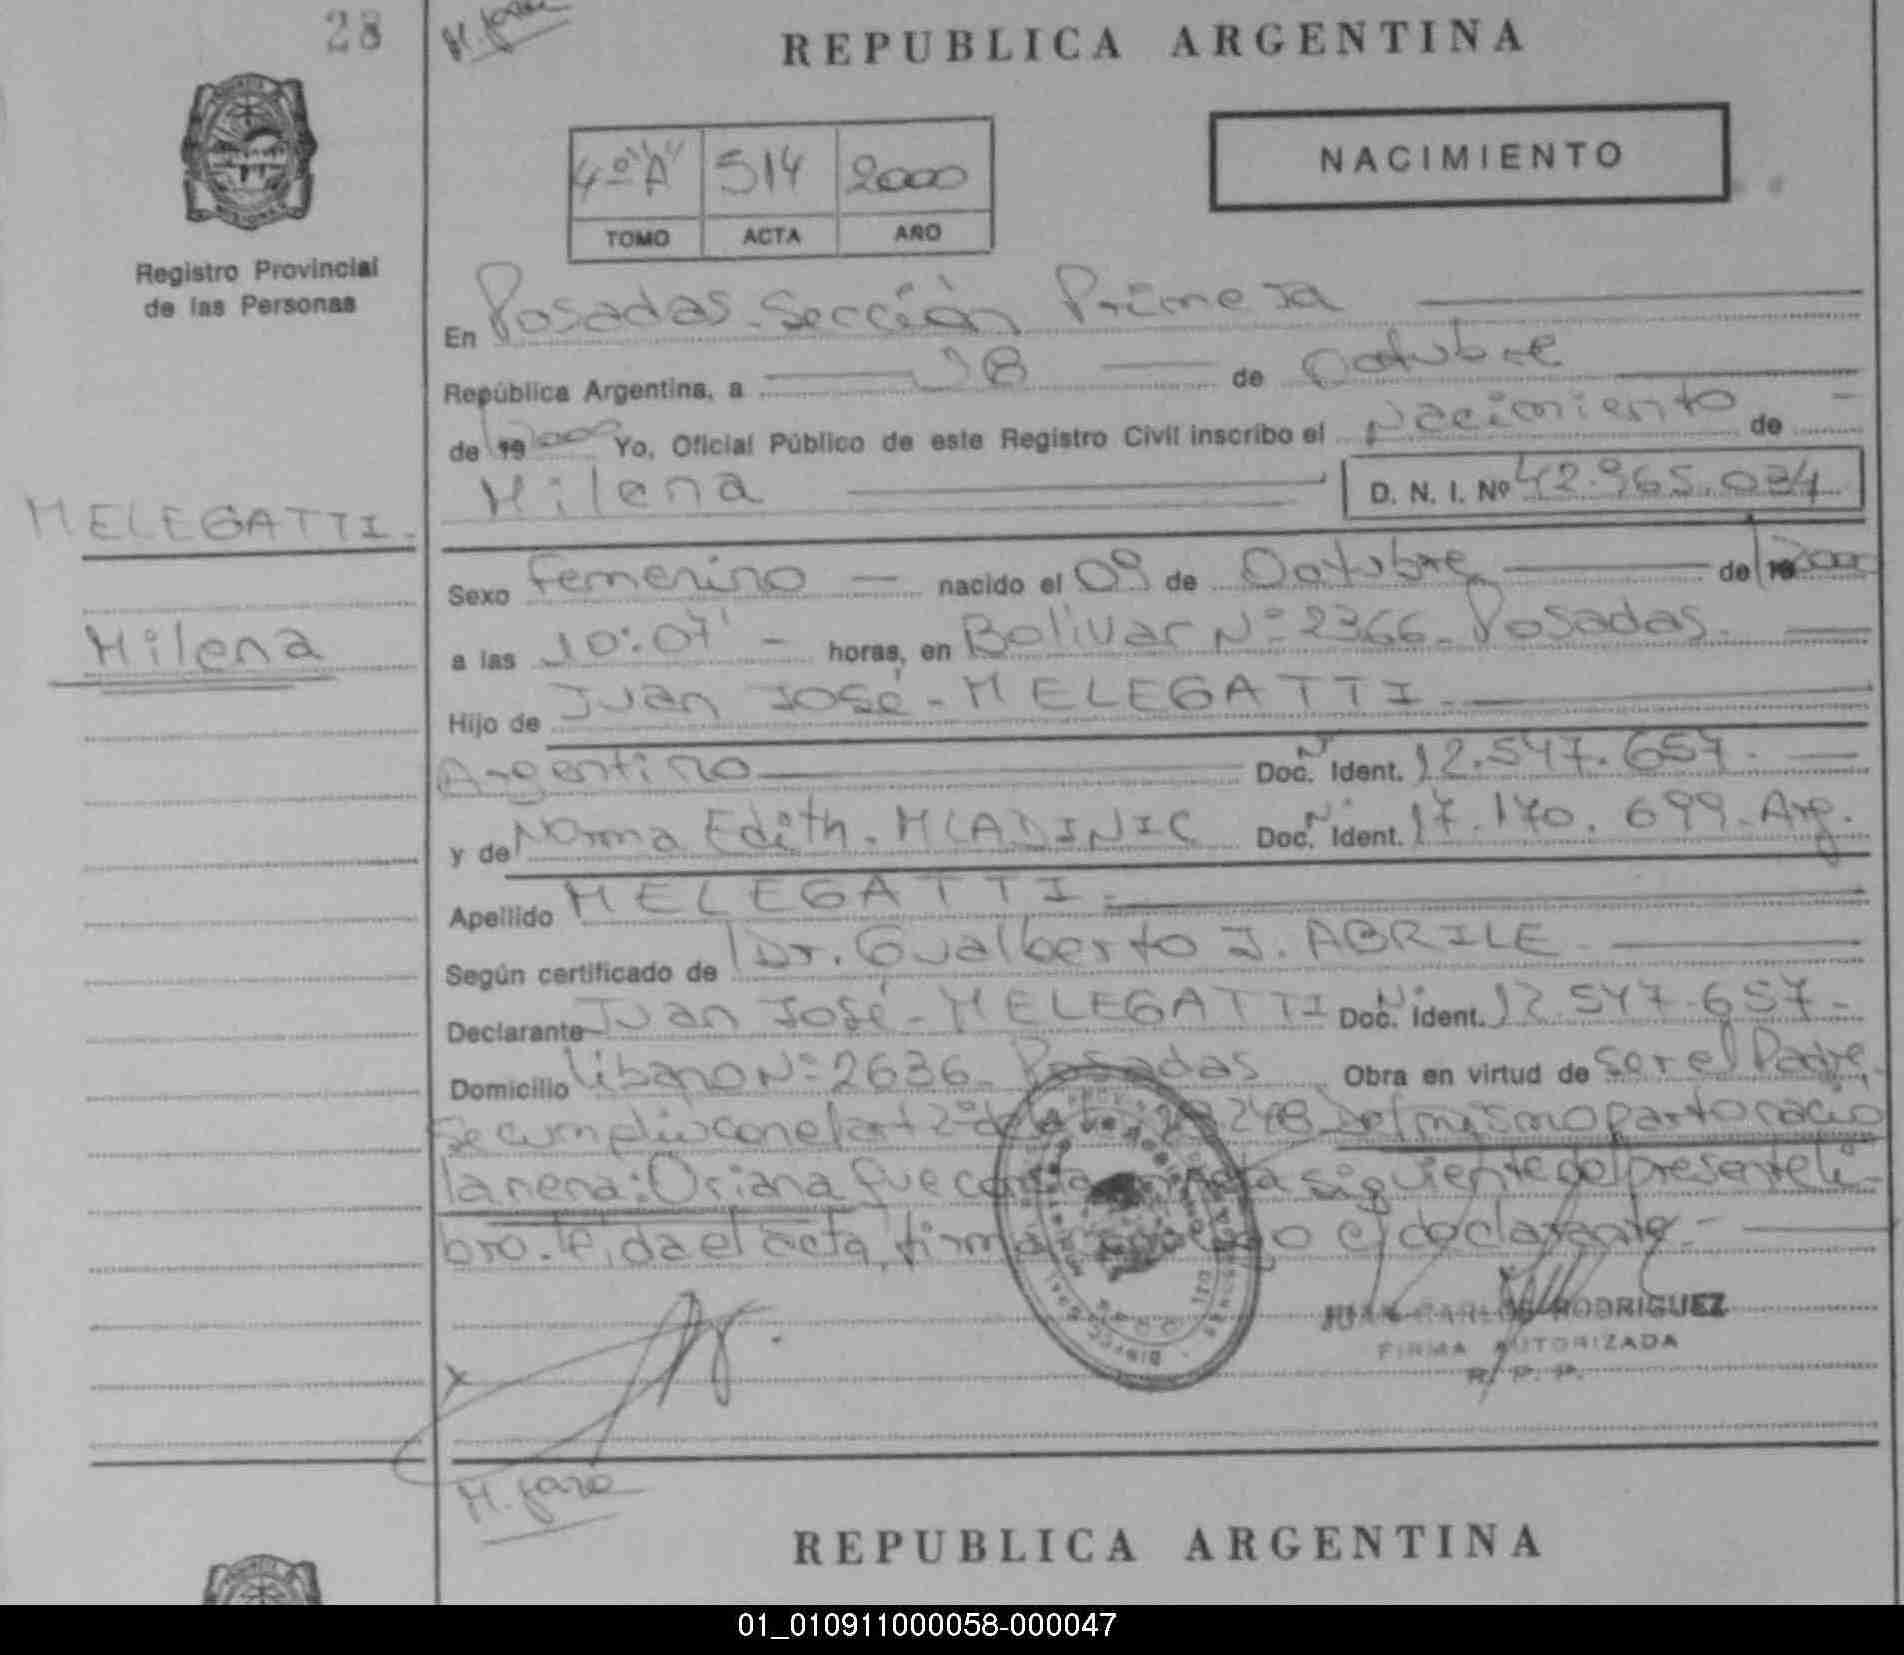 28
REPUBLICA ARGENTINA
NACIMIENTO
4º "A" 514 2000
TOMO ACTA AÑO
Registro Provincial
de las Personas
En Posadas - Sección Primera
República Argentina, a 18 de Octubre
de 19 2000 Yo, Oficial Público de este Registro Civil inscribo el Nacimiento de
Milena D. N. I. Nº 42.965.034
MELEGATTI.
Milena
Sexo femenino nacido el 09 de Octubre de 19 2000
a las 10:07' horas, en Bolivar Nº 2366 - Posadas.
Hijo de Juan José - MELEGATTI.
Argentino Doc. Nº Ident. 12.547.657.
y de Norma Edith - MLADINIC Doc. Nº Ident. 17.170.699 - Arg.
Apellido MELEGATTI.
Según certificado de Dr. Gualberto J. ABRILE
Declarante Juan José - MELEGATTI Doc. Nº Ident. 12.547.657 -
Domicilio Libano Nº 2636 - Posadas Obra en virtud de ser el Padre.
Se cumplió con el art 2º de la 248 Del mismo parto nació
la nena: Oriana fue acta siguiente del presente li-
bro. leida el acta, firma el declarante. -
JUAN CARLOS RODRIGUEZ
FIRMA AUTORIZADA
R. P. P.
X
REPUBLICA ARGENTINA
01_010911000058-000047